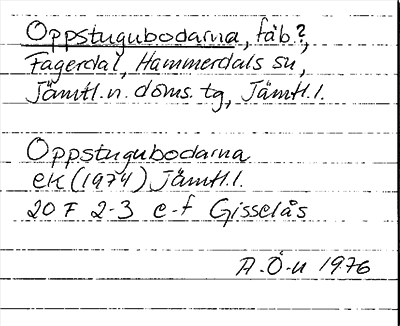 Oppstugubodarna, fäb.?,
Fagerdal, Hammerdals sn,
Jämtl. n. doms. tg, Jämtl. l.
Oppstugubodarna
ek (1974) Jämtl. l.
20 F 2-3 e-f Gisselås
A. Ö-n 1976